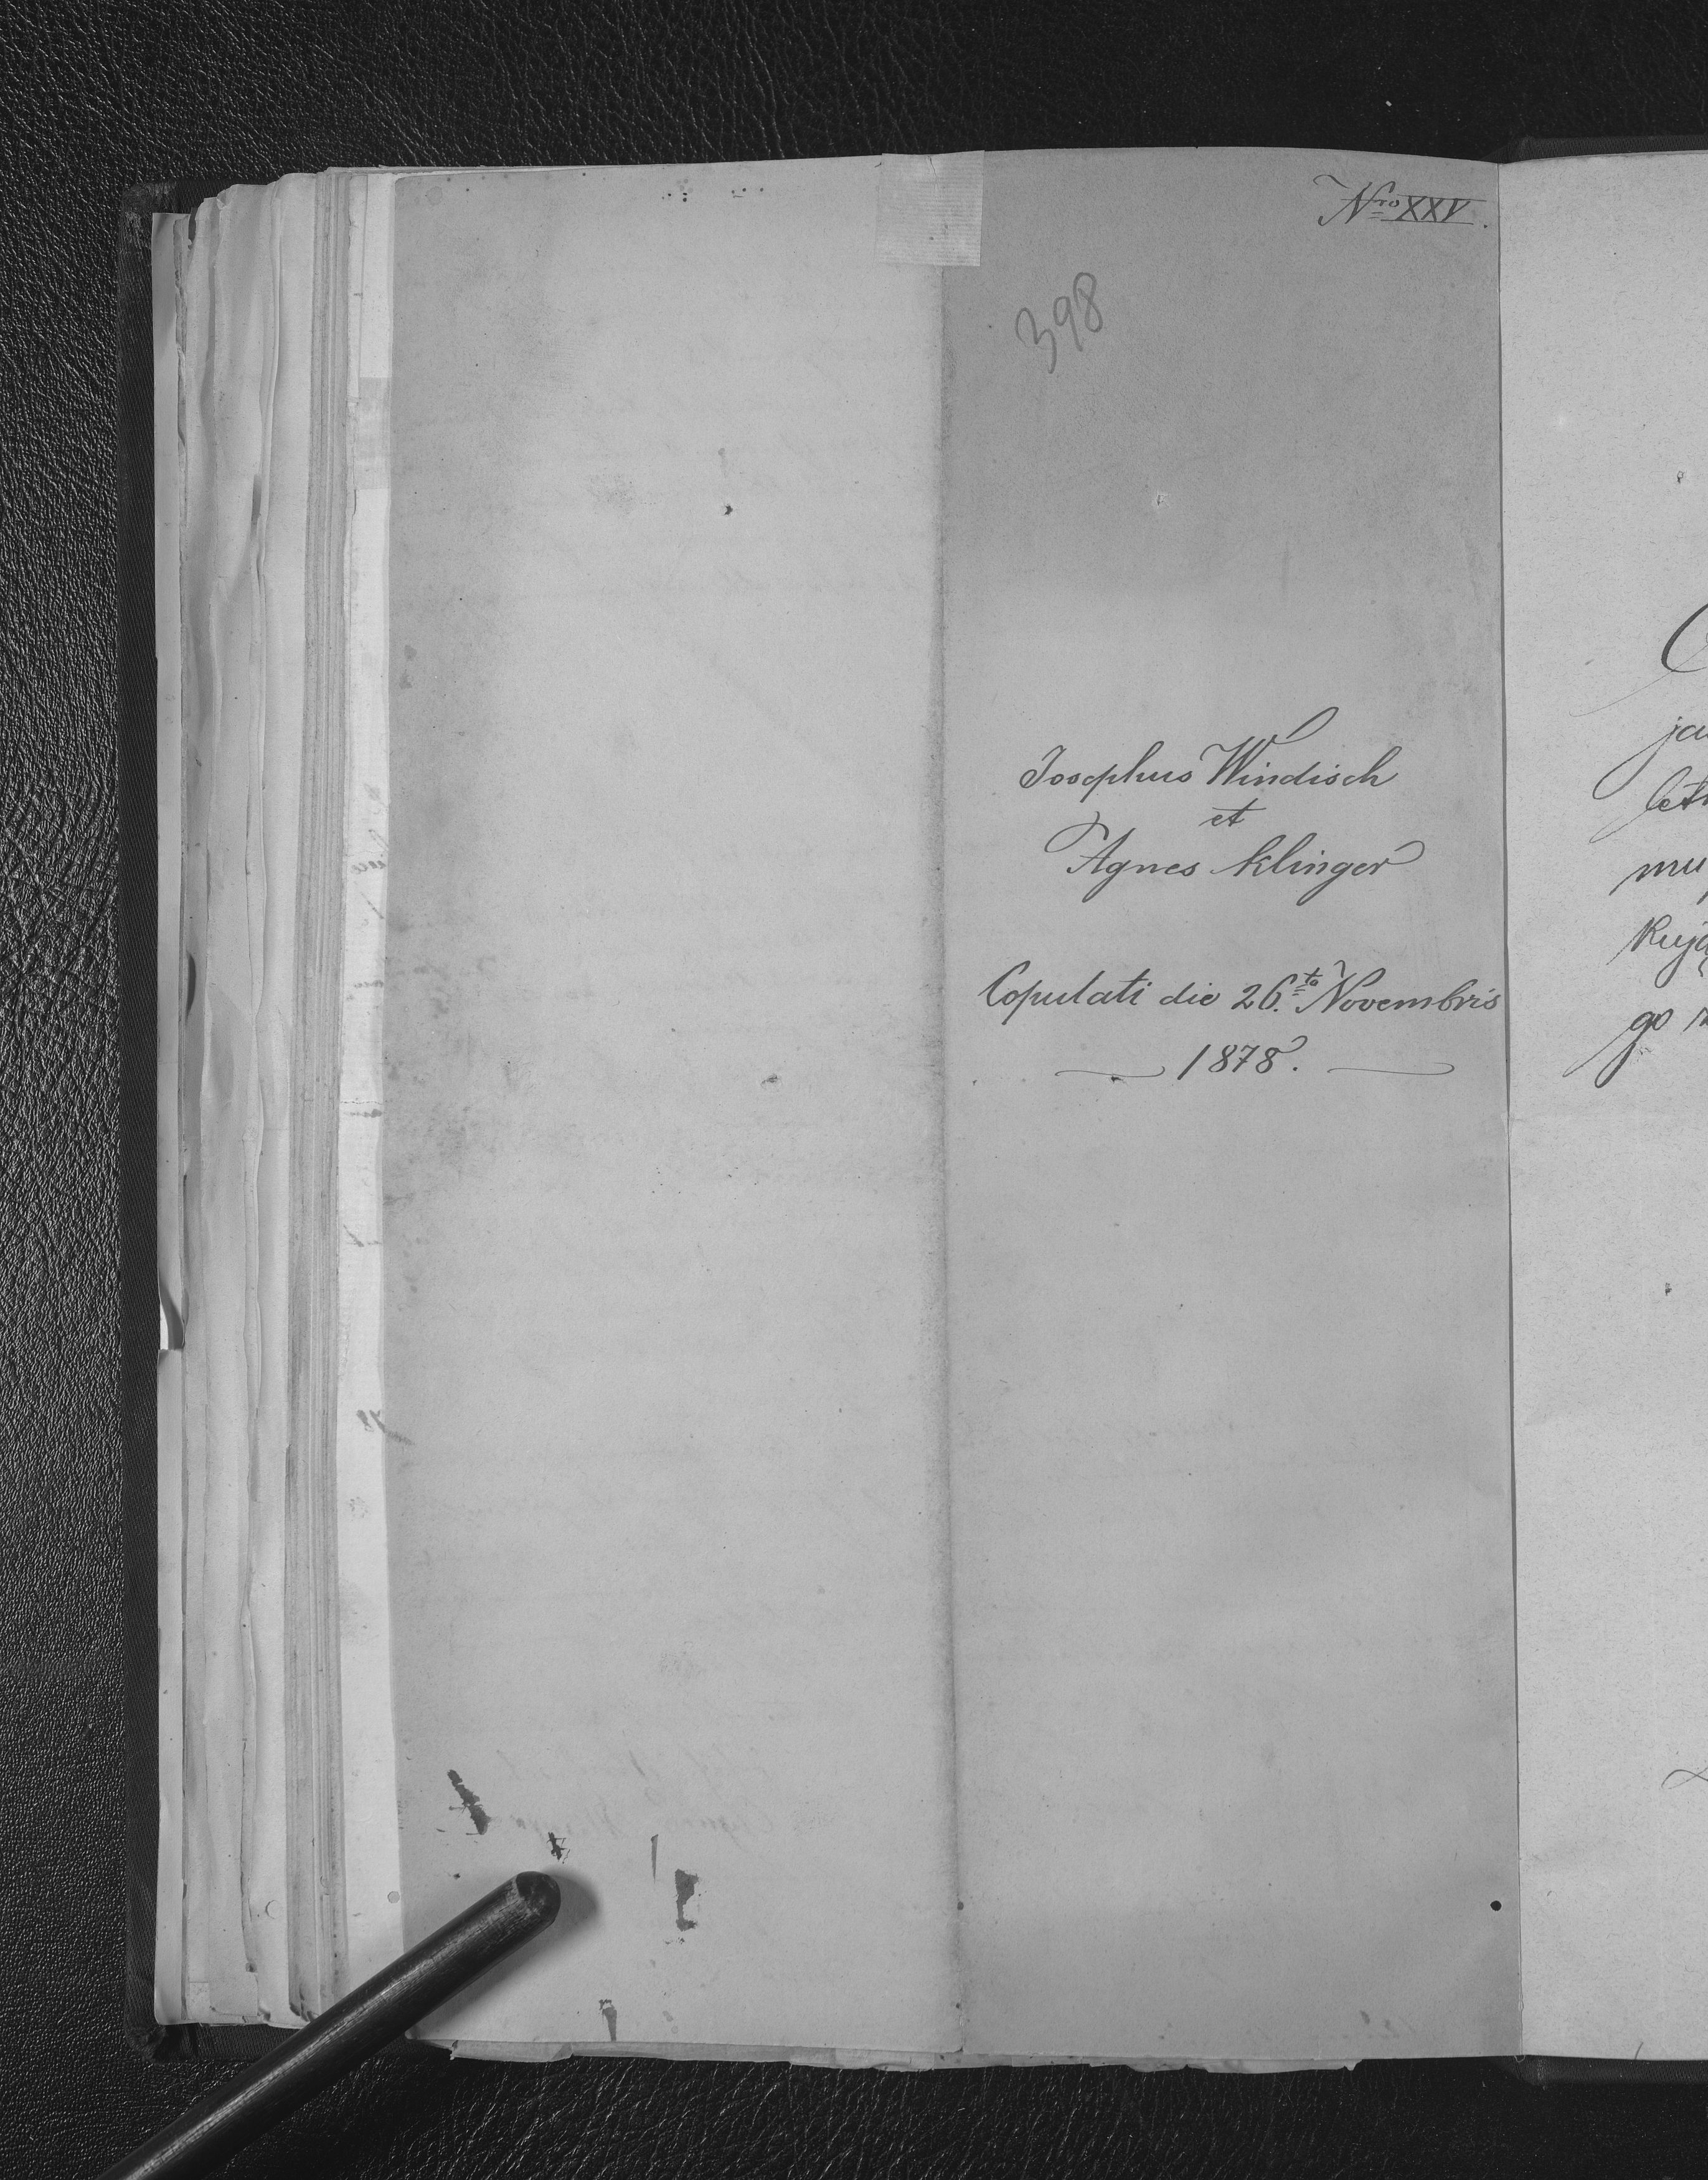 Nro XXV.
398
Josephus Windisch
et
Agnes Klinger
Copulati die 26.ta Novembris
1878.
ja
mu
go